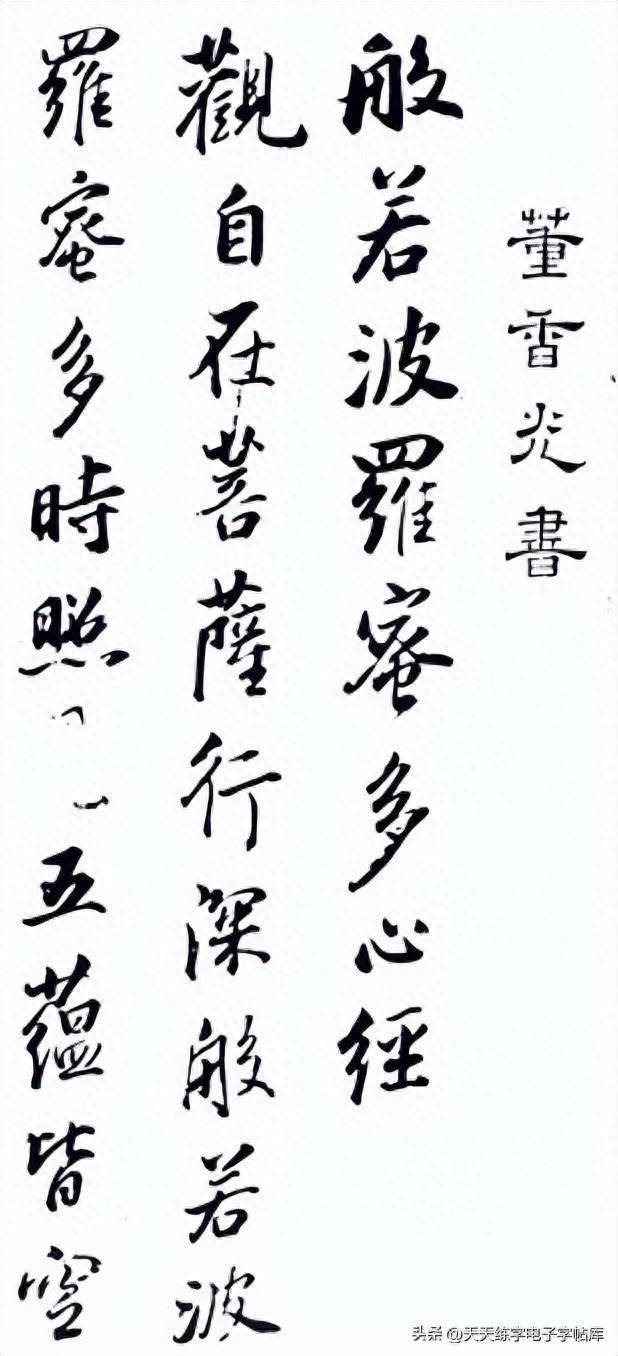 董香光書
般若波羅蜜多心經
觀自在菩薩行深般若波
羅蜜多時照五蘊皆空
头条 @天天练字电子字帖库